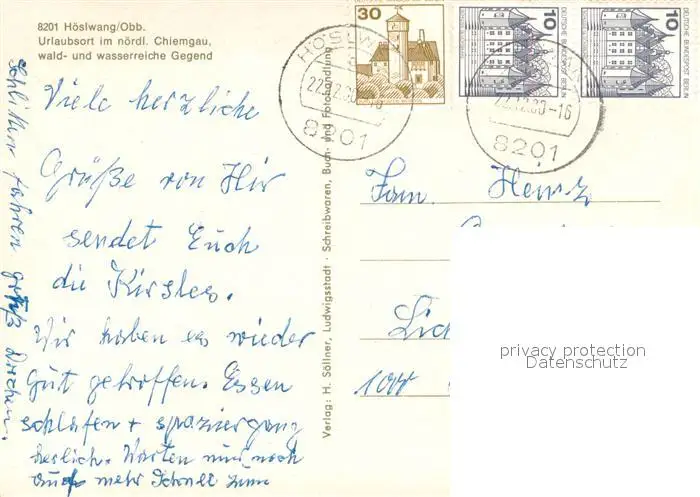 8201 Höslwang/Obb.
Urlaubsort im nördl. Chiemgau,
wald- und wasserreiche Gegend
Viele herzliche
Grüße von Hir
sendet Euch
die
Wir haben es wieder
gut getroffen. Essen
schlafen + spaziergang
herlich. Warten nur noch
auf mehr Schnee zum
fahren
Verlag: H. Söllner, Ludwigsstadt · Schreibwaren, Buch- und Fotohandlung
30
10
DEUTSCHE BUNDESPOST BERLIN
10
DEUTSCHE BUNDESPOST BERLIN
8201
22.12.80-16
8201
Fam.
1000
privacy protection
Datenschutz